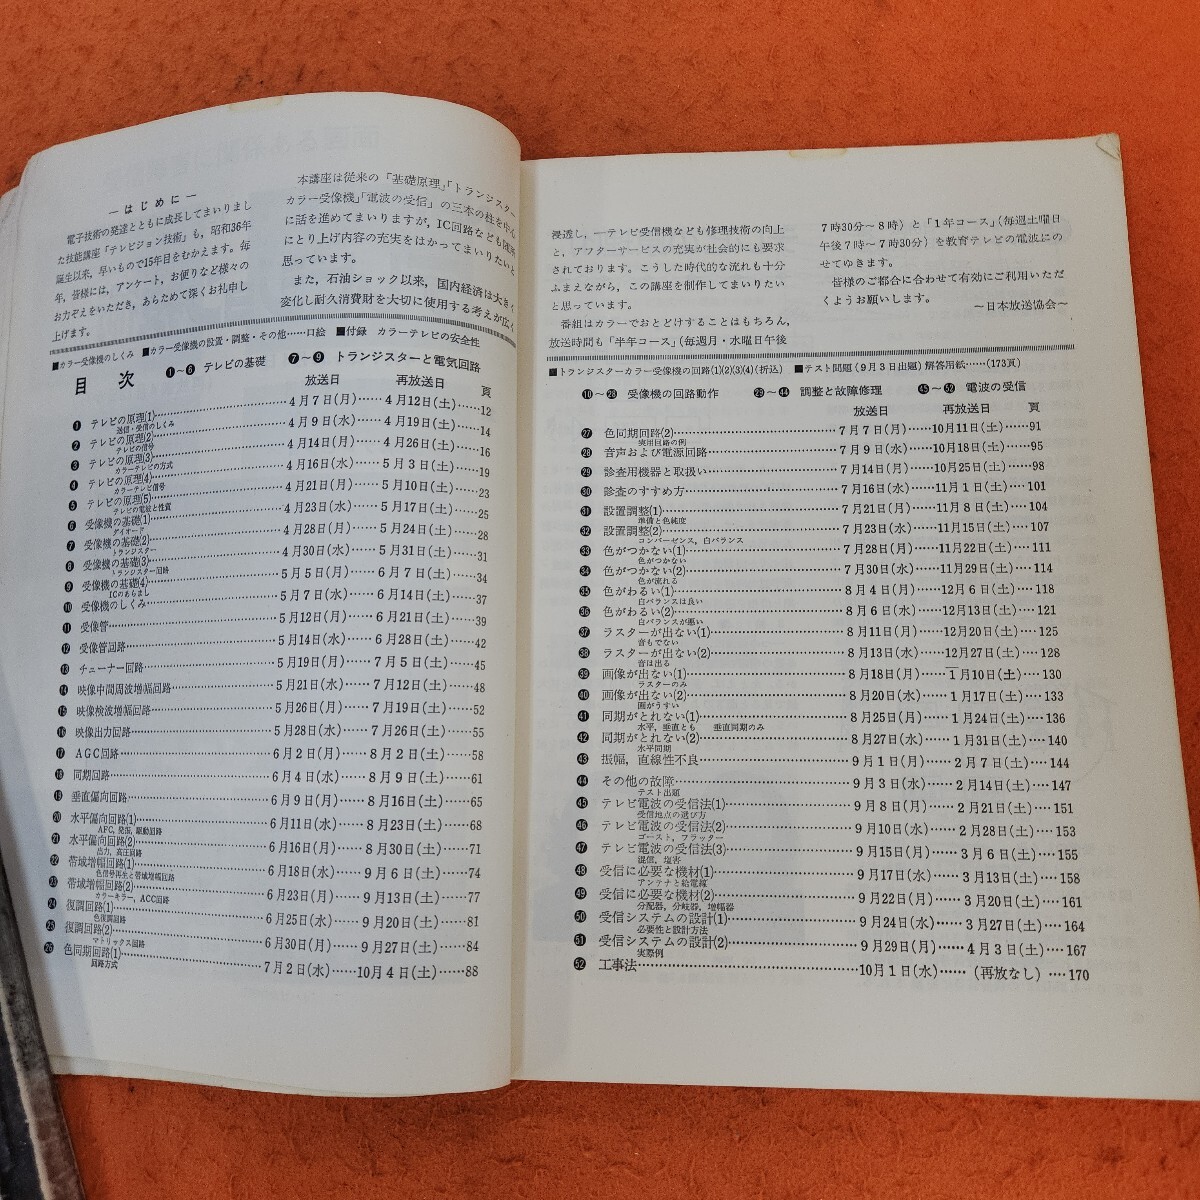 ―はじめに―
電子技術の発達とともに成長してまいりまし
た技能講座「テレビジョン技術」も，昭和36年
誕生以来，早いもので15年目をむかえます。毎
年，皆様には，アンケート，お便りなど様々の
お力ぞえをいただき，あらためて深くお礼申し
上げます。
本講座は従来の「基礎原理」「トランジスター
カラー受像機」「電波の受信」の三本の柱を中心
に話を進めてまいりますが，IC回路なども随所
にとり上げ内容の充実をはかってまいりたいと
思っています。
また，石油ショック以来，国内経済は大きく
変化し耐久消費財を大切に使用する考えが広く
■カラー受像機のしくみ ■カラー受像機の設置・調整・その他……口絵 ■付録 カラーテレビの安全性
目次 ❶～❻ テレビの基礎 ❼～❾ トランジスターと電気回路
放送日 再放送日 頁
❶ テレビの原理(1)……4月7日(月)……4月12日(土)……12
送信・受信のしくみ
❷ テレビの原理(2)……4月9日(水)……4月19日(土)……14
テレビの信号
❸ テレビの原理(3)……4月14日(月)……4月26日(土)……16
カラーテレビの方式
❹ テレビの原理(4)……4月16日(水)……5月3日(土)……19
カラーテレビ信号
❺ テレビの原理(5)……4月21日(月)……5月10日(土)……23
テレビの電波と性質
❻ 受像機の基礎(1)……4月23日(水)……5月17日(土)……25
ダイオード
❼ 受像機の基礎(2)……4月28日(月)……5月24日(土)……28
トランジスター
❽ 受像機の基礎(3)……4月30日(水)……5月31日(土)……31
トランジスター回路
❾ 受像機の基礎(4)……5月5日(月)……6月7日(土)……34
ICのあらまし
❿ 受像機のしくみ……5月7日(水)……6月14日(土)……37
⓫ 受像管……5月12日(月)……6月21日(土)……39
⓬ 受像管回路……5月14日(水)……6月28日(土)……42
⓭ チューナー回路……5月19日(月)……7月5日(土)……45
⓮ 映像中間周波増幅回路……5月21日(水)……7月12日(土)……48
⓯ 映像検波増幅回路……5月26日(月)……7月19日(土)……52
⓰ 映像出力回路……5月28日(水)……7月26日(土)……55
⓱ AGC回路……6月2日(月)……8月2日(土)……58
⓲ 同期回路……6月4日(水)……8月9日(土)……61
⓳ 垂直偏向回路……6月9日(月)……8月16日(土)……65
⓴ 水平偏向回路(1)……6月11日(水)……8月23日(土)……68
AFC, 発振, 駆動回路
㉑ 水平偏向回路(2)……6月16日(月)……8月30日(土)……71
出力, 高圧回路
㉒ 帯域増幅回路(1)……6月18日(水)……9月6日(土)……74
色信号再生と帯域増幅回路
㉓ 帯域増幅回路(2)……6月23日(月)……9月13日(土)……77
カラーキラー, ACC回路
㉔ 復調回路(1)……6月25日(水)……9月20日(土)……81
色復調回路
㉕ 復調回路(2)……6月30日(月)……9月27日(土)……84
マトリックス回路
㉖ 色同期回路(1)……7月2日(水)……10月4日(土)……88
回路方式
浸透し，一テレビ受信機なども修理技術の向上
と，アフターサービスの充実が社会的にも要求
されております。こうした時代的な流れも十分
ふまえながら，この講座を制作してまいりたい
と思っています。
番組はカラーでおとどけすることはもちろん，
放送時間も「半年コース」(毎週月・水曜日午後
7時30分～8時）と「1年コース」(毎週土曜日
午後7時～7時30分）を教育テレビの電波にの
せてゆきます。
皆様のご都合に合わせて有効にご利用いただ
くようお願いします。
～日本放送協会～
■トランジスターカラー受像機の回路(1)(2)(3)(4)(折込) ■テスト問題(9月3日出題)解答用紙……(173頁)
❿～㉘ 受像機の回路動作 ㉙～㊹ 調整と故障修理 ㊺～52 電波の受信
放送日 再放送日 頁
㉗ 色同期回路(2)……7月7日(月)……10月11日(土)…91
実用回路の例
㉘ 音声および電源回路……7月9日(水)……10月18日(土)…95
㉙ 診査用機器と取扱い……7月14日(月)……10月25日(土)…98
㉚ 診査のすすめ方……7月16日(水)……11月1日(土)…101
㉛ 設置調整(1)……7月21日(月)……11月8日(土)…104
準備と色純度
㉜ 設置調整(2)……7月23日(水)……11月15日(土)…107
コンバーゼンス, 白バランス
㉝ 色がつかない(1)……7月28日(月)……11月22日(土)…111
色がつかない
㉞ 色がつかない(2)……7月30日(水)……11月29日(土)…114
色が流れる
㉟ 色がわるい(1)……8月4日(月)……12月6日(土)…118
白バランスは良い
㊱ 色がわるい(2)……8月6日(水)……12月13日(土)…121
白バランスが悪い
㊲ ラスターが出ない(1)……8月11日(月)……12月20日(土)…125
音もでない
㊳ ラスターが出ない(2)……8月13日(水)……12月27日(土)…128
音は出る
㊴ 画像が出ない(1)……8月18日(月)……1月10日(土)…130
ラスターのみ
㊵ 画像が出ない(2)……8月20日(水)……1月17日(土)…133
画がうすい
㊶ 同期がとれない(1)……8月25日(月)……1月24日(土)…136
水平, 垂直とも 垂直同期のみ
㊷ 同期がとれない(2)……8月27日(水)……1月31日(土)…140
水平同期
㊸ 振幅，直線性不良……9月1日(月)……2月7日(土)…144
㊹ その他の故障……9月3日(水)……2月14日(土)…147
テスト出題
㊺ テレビ電波の受信法(1)……9月8日(月)……2月21日(土)…151
受信地点の選び方
㊻ テレビ電波の受信法(2)……9月10日(水)……2月28日(土)…153
ゴースト, フラッター
㊼ テレビ電波の受信法(3)……9月15日(月)……3月6日(土)…155
混信, 塩害
㊽ 受信に必要な機材(1)……9月17日(水)……3月13日(土)…158
アンテナと給電線
㊾ 受信に必要な機材(2)……9月22日(月)……3月20日(土)…161
分配器, 分岐器, 増幅器
㊿ 受信システムの設計(1)……9月24日(水)……3月27日(土)…164
必要性と設計方法
51 受信システムの設計(2)……9月29日(月)……4月3日(土)…167
実際例
52 工事法……10月1日(水)……(再放なし)…170